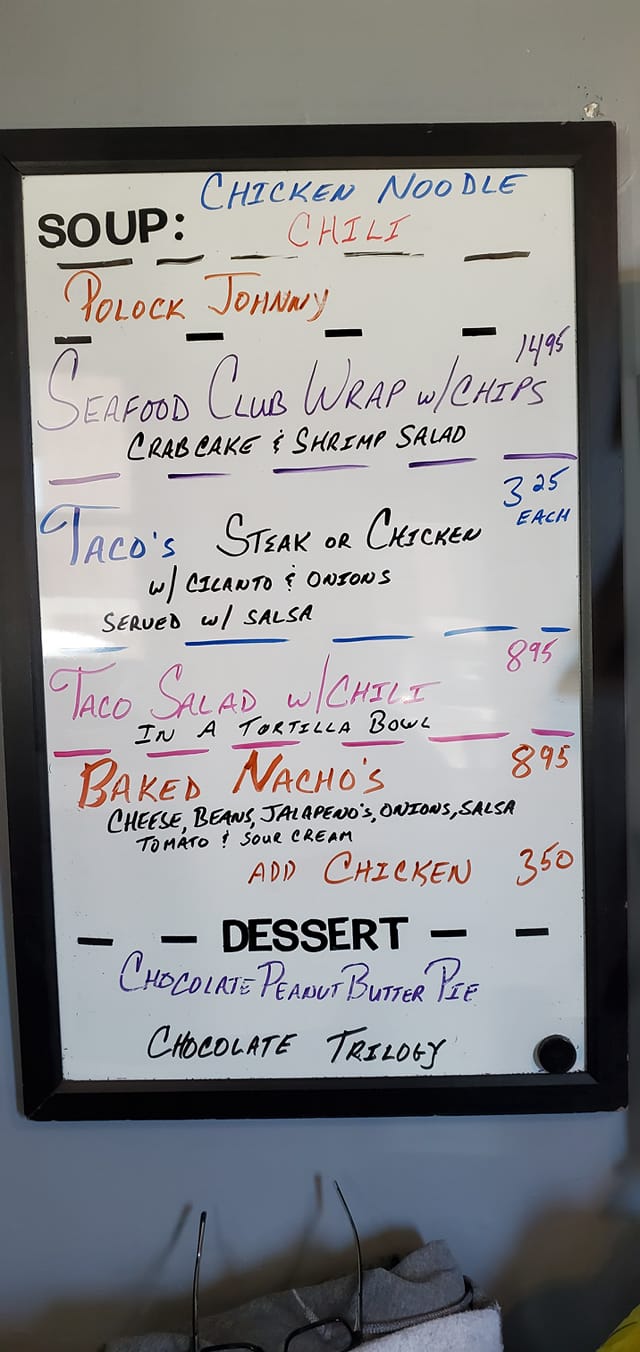 CHICKEN NOODLE
SOUP: CHILI
POLOCK JOHNNY
1495
SEAFOOD CLUB WRAP w/CHIPS
CRABCAKE & SHRIMP SALAD
325
EACH
TACO'S STEAK OR CHICKEN
w/ CILANTO & ONIONS
SERVED w/ SALSA
895
TACO SALAD w/CHILI
IN A TORTILLA BOWL
BAKED NACHO'S 895
CHEESE, BEANS, JALAPENO'S, ONIONS, SALSA
TOMATO & SOUR CREAM
ADD CHICKEN 350
DESSERT
CHOCOLATE PEANUT BUTTER PIE
CHOCOLATE TRILOGY